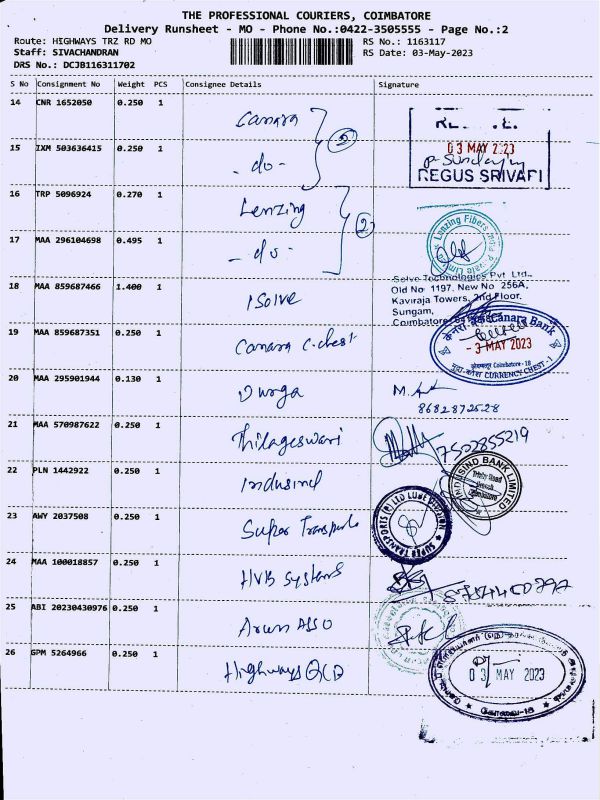 THE PROFESSIONAL COURIERS, COIMBATORE
Delivery Runsheet - MO - Phone No.:0422-3505555 - Page No.:2
Route: HIGHWAYS TRZ RD MO RS No.: 1163117
Staff: SIVACHANDRAN RS Date: 03-May-2023
DRS No.: DCJB116311702
S No Consignment No Weight PCS Consignee Details Signature
14 CNR 1652050 0.250 1 Canara
03 MAY 2023
15 IXM 503636415 0.250 1 -do- (2)
REGUS SRIVARI
16 TRP 5096924 0.270 1 Lenzing
Lenzing Fibers India Private Limited
17 MAA 296104698 0.495 1 -do- (2)
18 MAA 859687466 1.400 1 iSolve
Solve Technologies Pvt Ltd.,
Old No 1197, New No 256A,
Kaviraja Towers, 2nd Floor,
Sungam,
Coimbatore
19 MAA 859687351 0.250 1 Canara C.chest
केनरा बैंक Canara Bank
- 3 MAY 2023
Coimbatore - 18
CURRENCY CHEST - 1
20 MAA 295901944 0.130 1 Durga
8682872528
21 MAA 570987622 0.250 1 Thilageswari 7502855219
22 PLN 1442922 0.250 1 Indusind
INDUSIND BANK LIMITED
Trichy Road
Coimbatore
23 AWY 2037508 0.250 1 Super Transports
SUPER TRANSPORTS (P) LTD LUBE DIVISION
24 MAA 100018857 0.250 1 HVB Systems
25 ABI 20230430976 0.250 1 Arun Asso
26 GPM 5264966 0.250 1 Highways QCD
03 MAY 2023